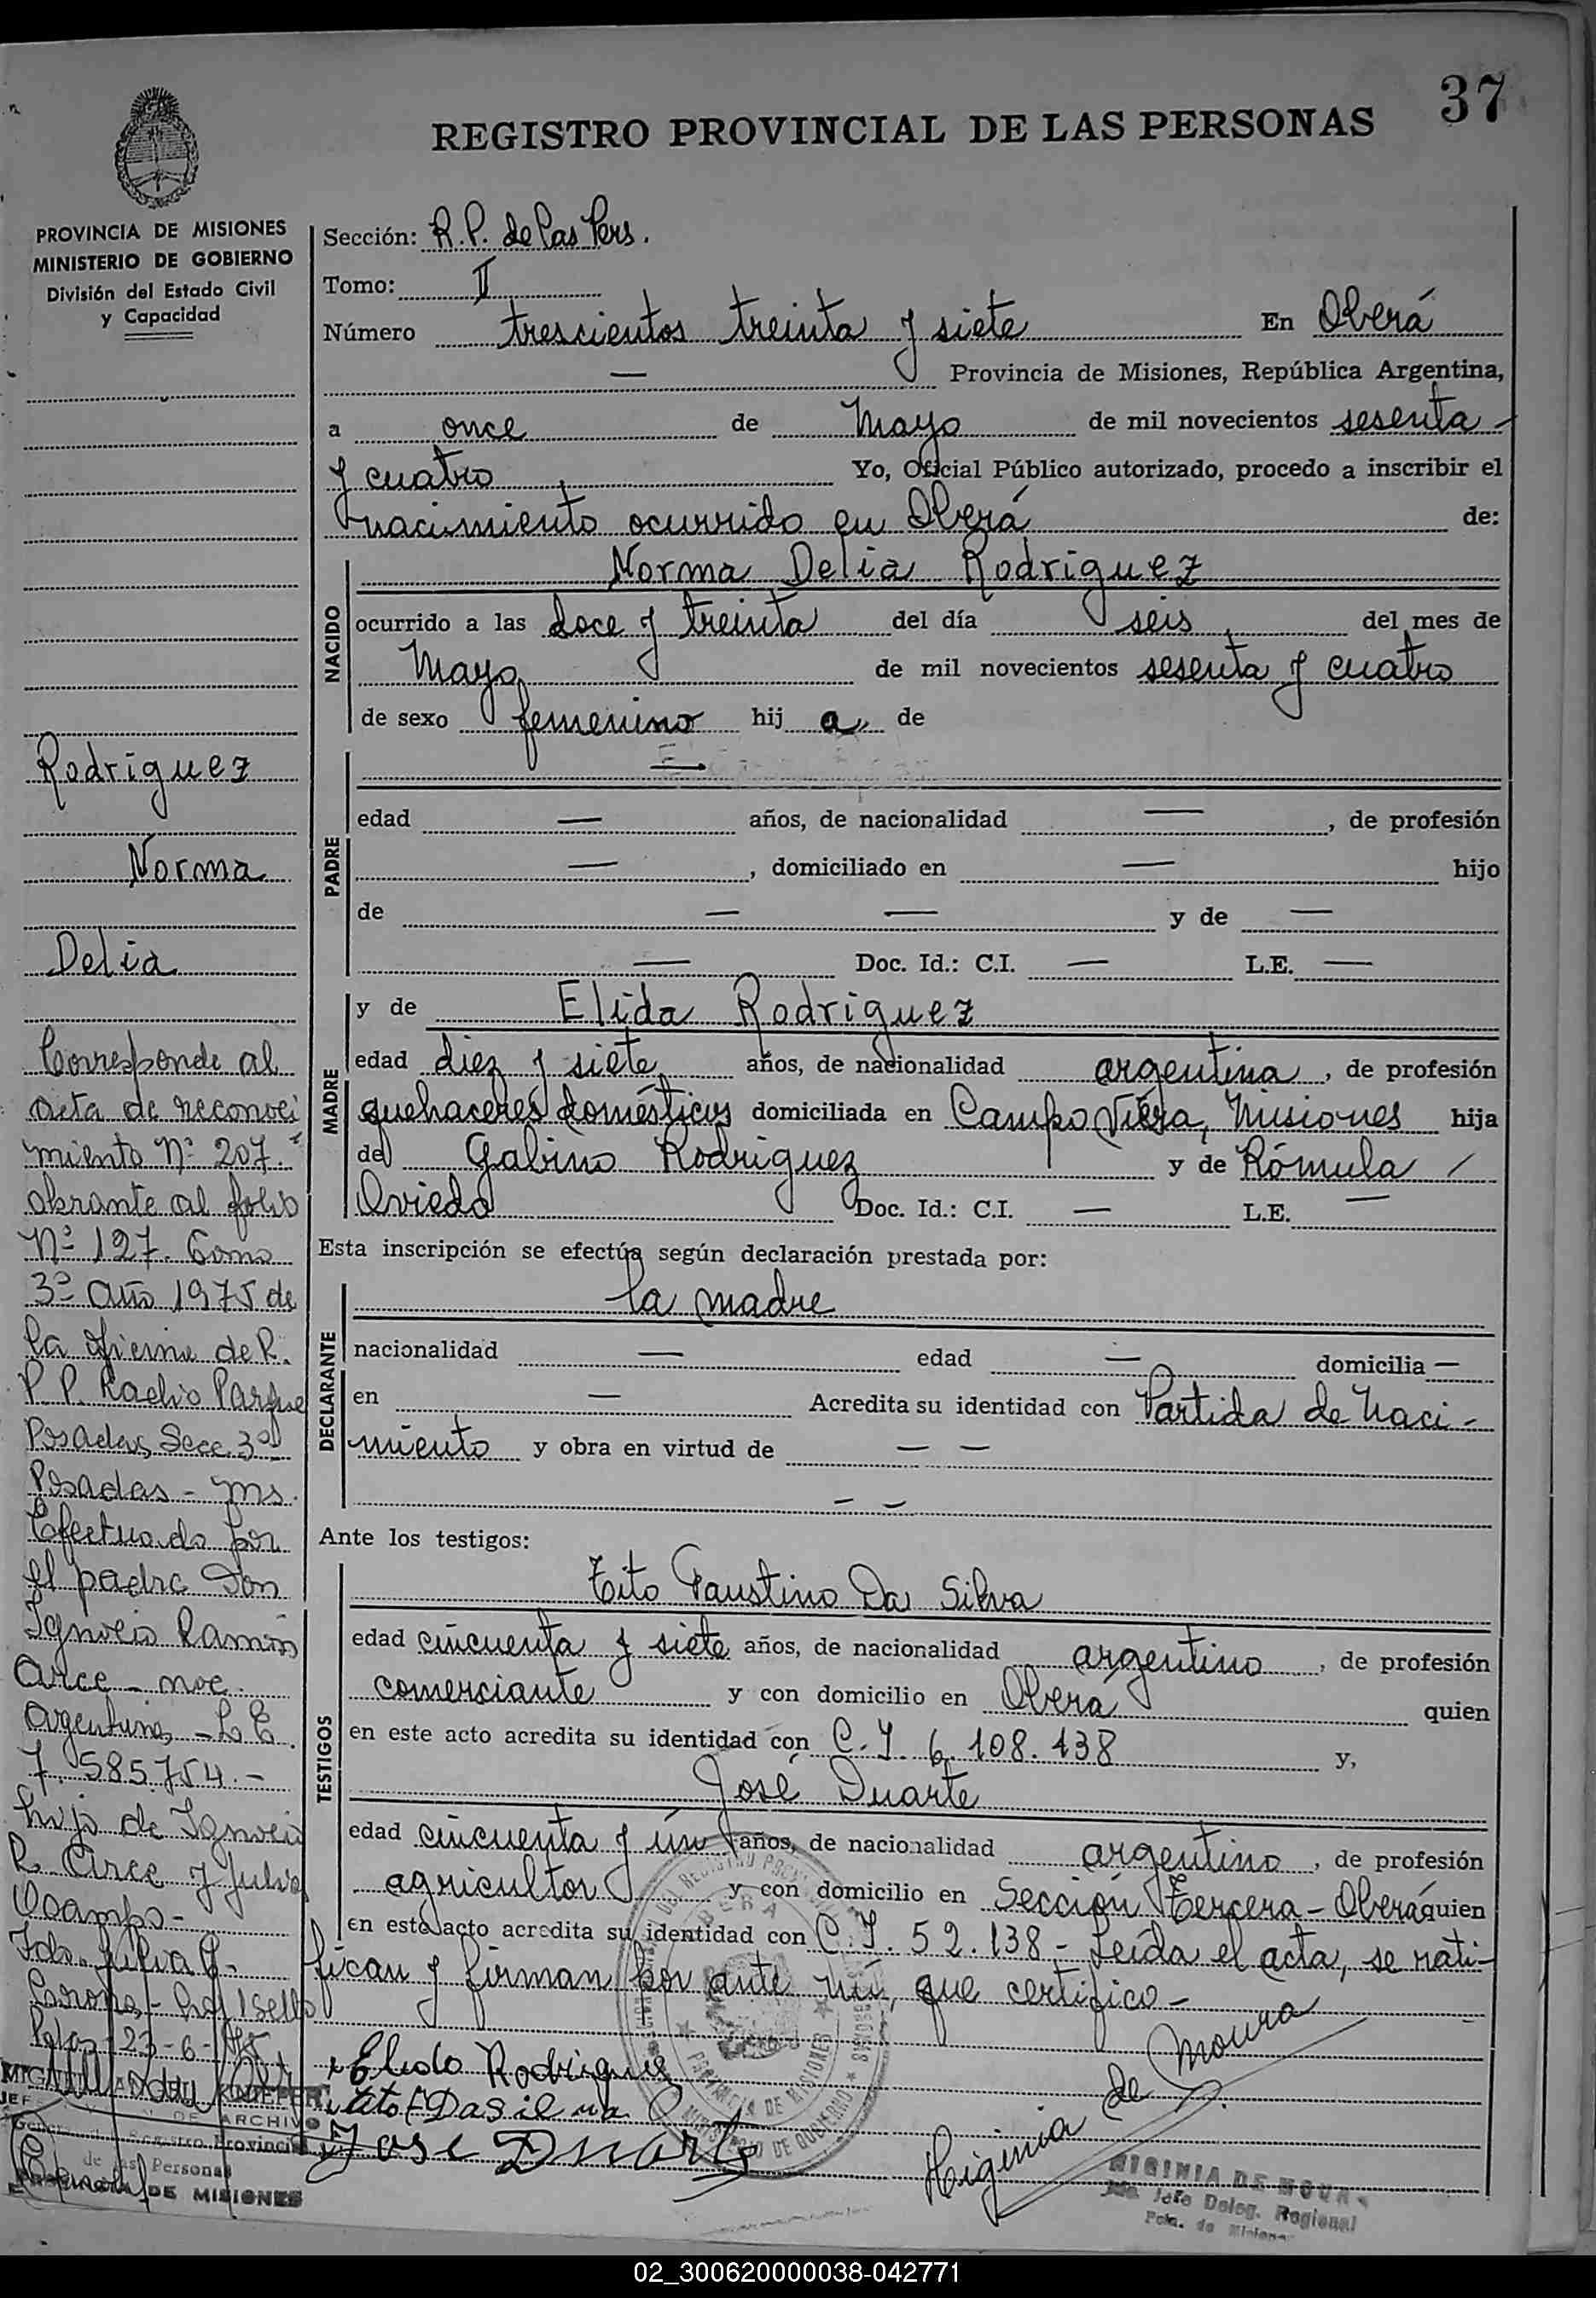 37
REGISTRO PROVINCIAL DE LAS PERSONAS
PROVINCIA DE MISIONES
MINISTERIO DE GOBIERNO
División del Estado Civil
y Capacidad
Sección: R.P. de las Pers.
Tomo: II
Número trescientos treinta y siete En Oberá
— Provincia de Misiones, República Argentina,
a once de Mayo de mil novecientos sesenta -
y cuatro Yo, Oficial Público autorizado, procedo a inscribir el
nacimiento ocurrido en Oberá de:
NACIDO
Norma Delia Rodriguez
ocurrido a las doce y treinta del día seis del mes de
Mayo de mil novecientos sesenta y cuatro
de sexo femenino hij a de
PADRE
—
edad — años, de nacionalidad — , de profesión
— , domiciliado en — hijo
de — — y de —
— Doc. Id.: C.I. — L.E. —
MADRE
y de Elida Rodriguez
edad diez y siete años, de nacionalidad argentina , de profesión
quehaceres domésticos domiciliada en Campo Viera, Misiones hija
de Gabino Rodriguez y de Rómula /
Oviedo Doc. Id.: C.I. — L.E. —
Esta inscripción se efectúa según declaración prestada por:
DECLARANTE
la madre
nacionalidad — edad — domicilia —
en — Acredita su identidad con Partida de Naci-
miento y obra en virtud de — —
— —
Ante los testigos:
TESTIGOS
Tito Faustino Da Silva
edad cincuenta y siete años, de nacionalidad argentino , de profesión
comerciante y con domicilio en Oberá quien
en este acto acredita su identidad con C.I. 6.108.138 y,
José Duarte
edad cincuenta y ún años, de nacionalidad argentino , de profesión
agricultor y con domicilio en Sección Tercera - Oberá quien
en este acto acredita su identidad con C.I. 52.138 - Leída el acta, se rati-
fican y firman por ante mí, que certifico -
Elida Rodriguez
Tito F Da silva
Jose Duarte
Higinia de Moura
HIGINIA DE MOURA
Jefe Deleg. Regional
Pcia. de Misiones
Rodriguez
Norma
Delia
Corresponde al
acta de reconoci
miento Nº 207.
obrante al folio
Nº 127. Tomo
3º Año 1975 de
la oficina de R.
P. P. Radio Parque
Posadas, Secc. 3ª
Posadas - Ms.
Efectuado por
el padre Don
Ignacio Ramón
Arce - nac.
Argentina, - L.E.
7.585.754.-
hijo de Ignacio
R. Arce y Julia
Ocampo -
Fdo. Silvia G.
Pdas 23-6-
ARCHIVO
Registro Provincial
de las Personas
DE MISIONES
PROVINCIA DE MISIONES
MINISTERIO DE GOBIERNO
02_300620000038-042771